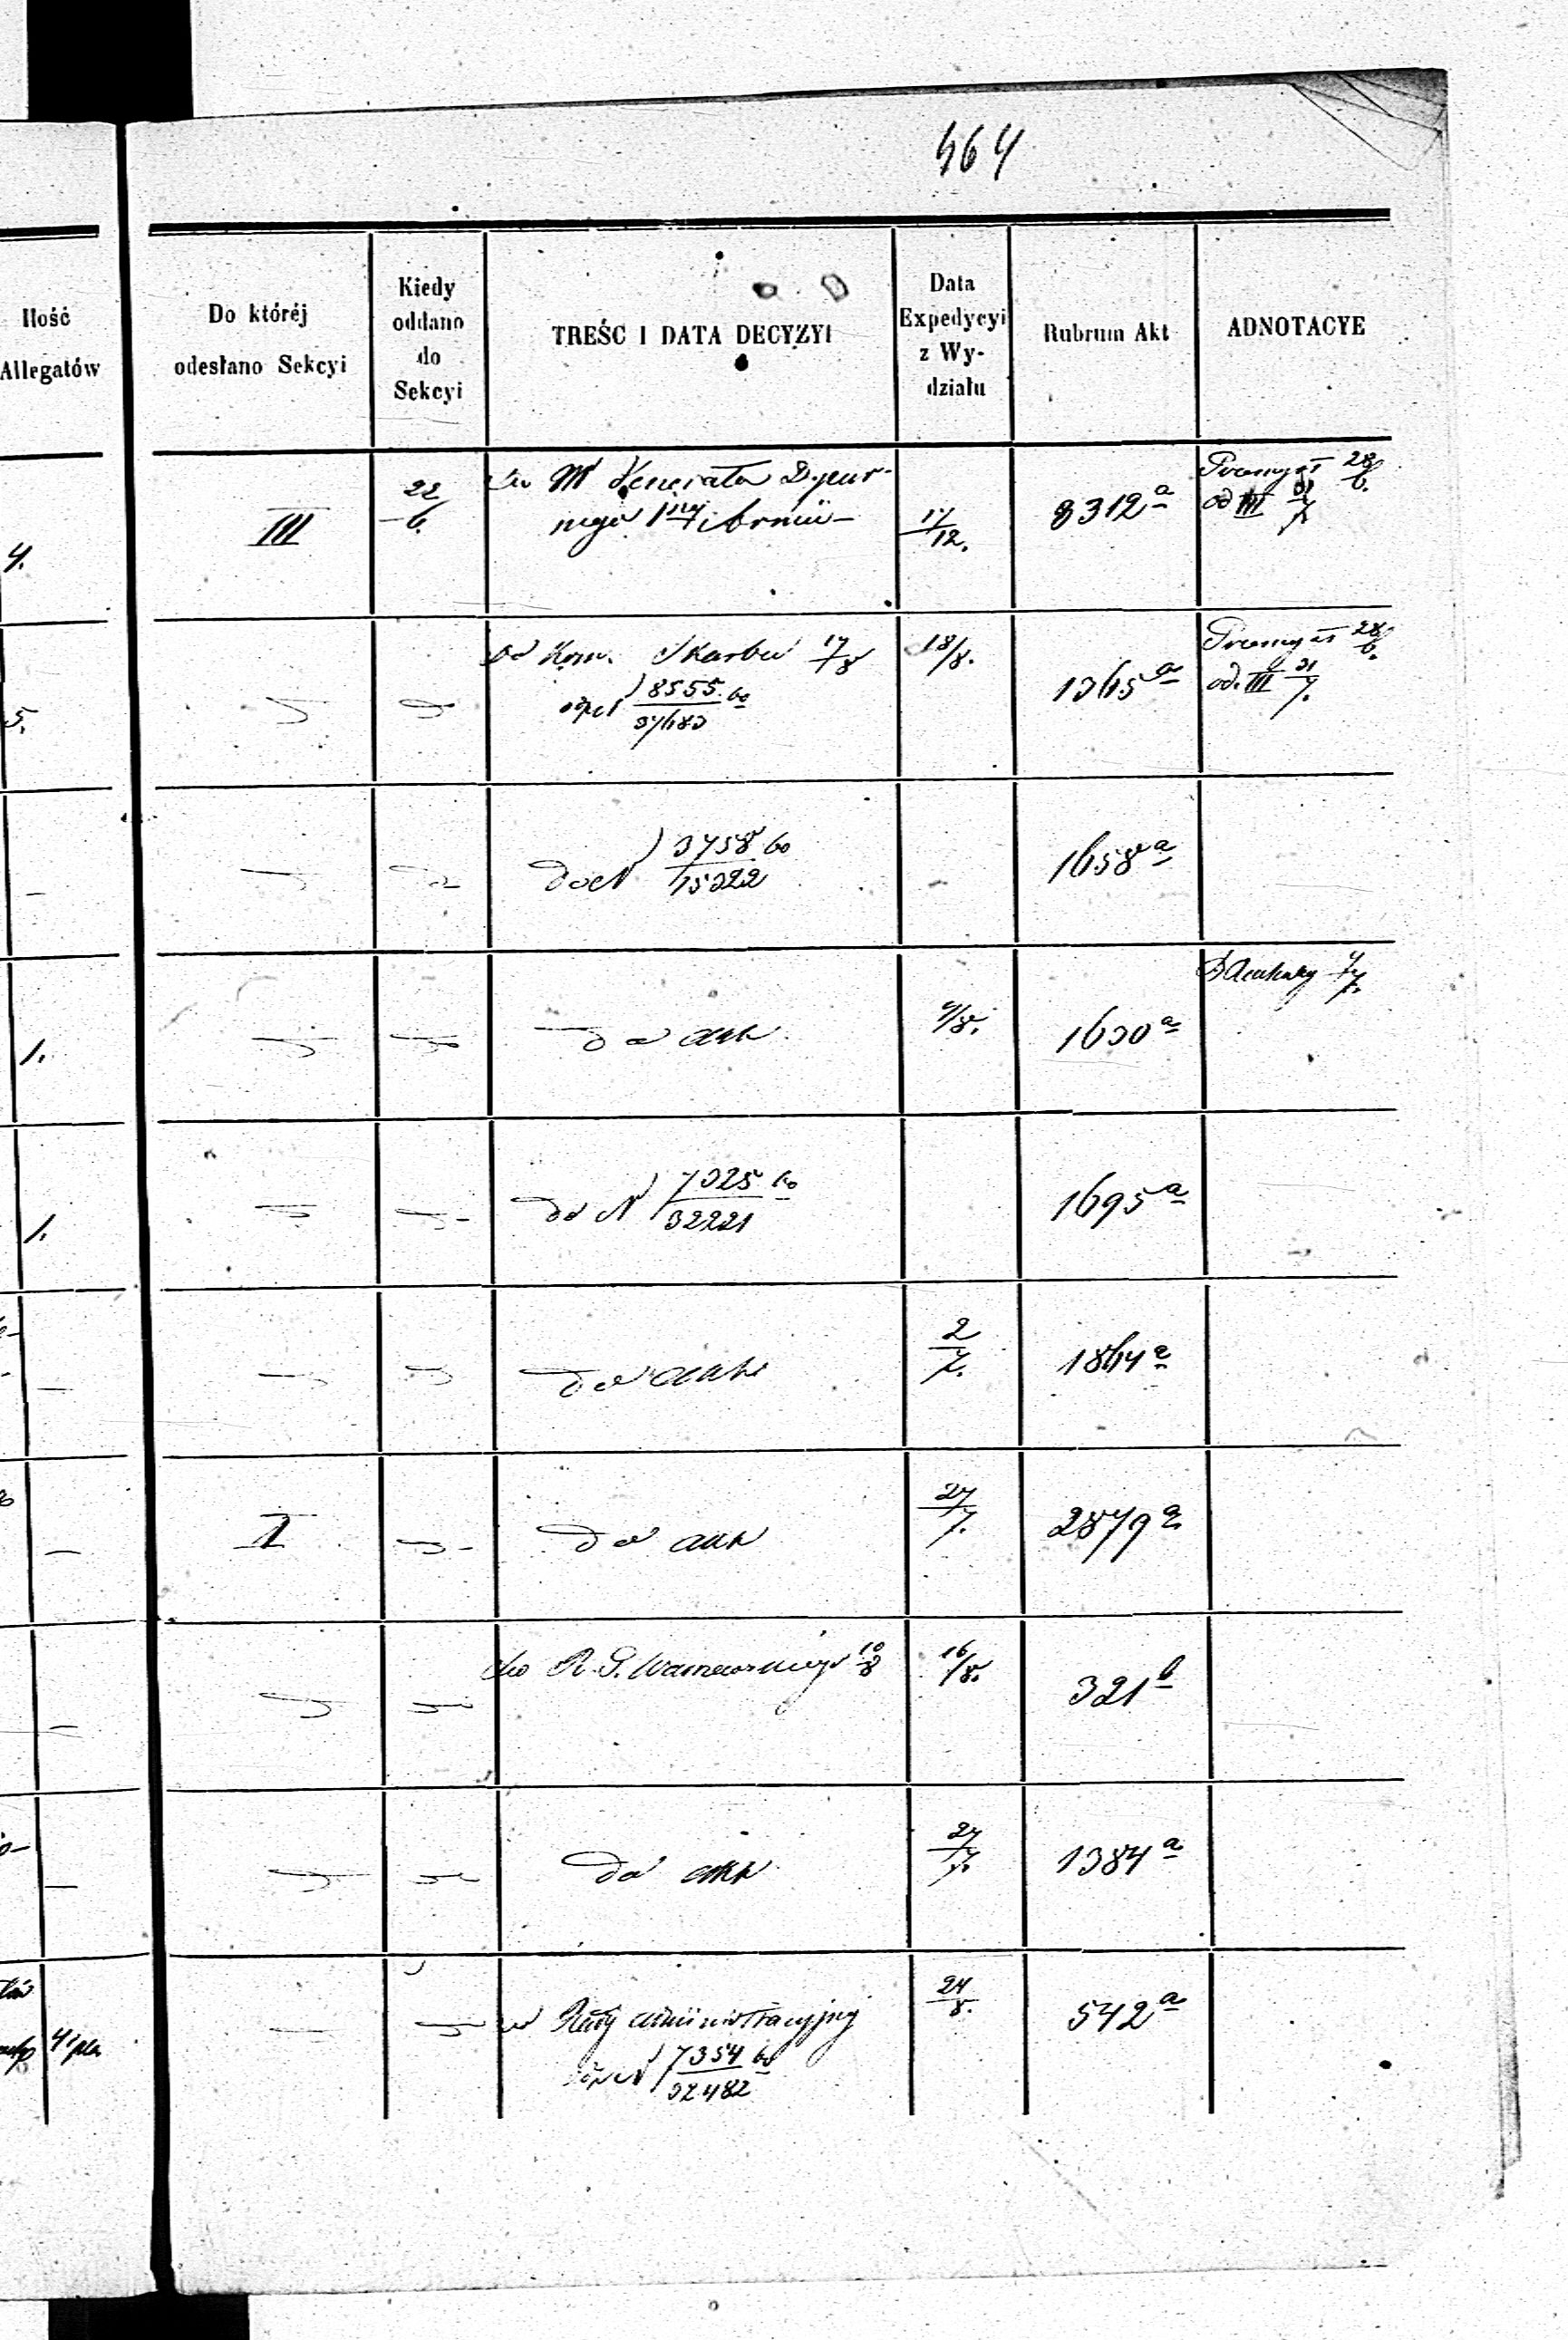 464
Ilość
Allegatów
Do któréj
odesłano Sekcyi
Kiedy
oddano
do
Sekcyi
TREŚC I DATA DECYZYI
Data
Expedycyi
z Wy-
działu
Rubrum Akt
ADNOTACYE
4.
III
22/6.
Do JW Generała Dyżur-
nego 1szej Armii
17/12.
8312 a
Przemysł 28/6.
od III 31/7.
5.
Do Kom. Skarbu 17/8
odpct N 8555.60
37683
18/8.
1365 a
Przemysł 28/6.
od. III 31/7.
-
do N 3758 60
15322
1658 a
1.
do akt
9/8.
1630 a
7/7.
1.
do N 7325 60
32221
1695 a
-
do akt
2/7.
1864 a
-
I
do akt
27/7.
2879 a
-
do R. G. Warszawskiego 10/8
16/8.
321 b
-
do akt
27/7.
1384 a
4
do Rady Administracyjnej
N 7354 60
32482
24/8.
542 a